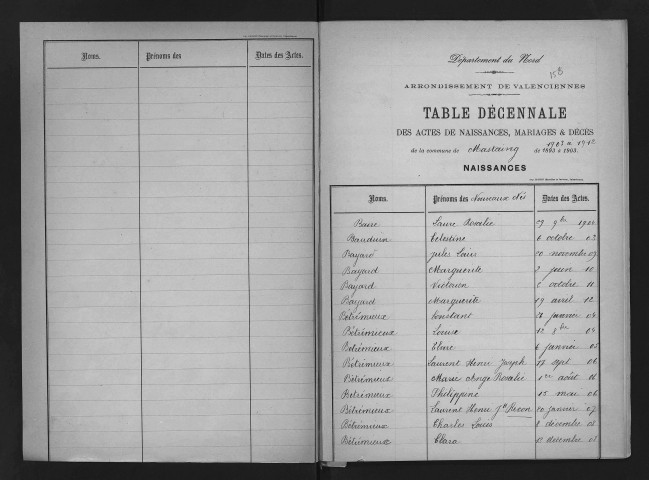 Noms. Prénoms des Dates des Actes.
Département du Nord
158
ARRONDISSEMENT DE VALENCIENNES
TABLE DÉCENNALE
DES ACTES DE NAISSANCES, MARIAGES & DÉCÈS
1903 à 1912
de la commune de Mastaing de 1893 à 1903.
NAISSANCES
Noms. Prénoms des Nouveaux Nés Dates des Actes.
Laure Rosalie 9bre
Bauduin Célestine 6 octobre 03
Bayard Jules Louis 20 novembre 09
Bayard Marguerite 2 juin 10
Bayard Victorien octobre 11
Bayard Marguerite 19 avril 12
Bétrémieux Constant janvier 04
Bétrémieux Louise 12 04
Bétrémieux 6 janvier 05
Bétrémieux Laurent Henri Joseph 17 sept 06
Bétrémieux Marie Rosalie 1er août 06
Bétrémieux Philippine 15 mai 06
Bétrémieux Laurent Henri Jh 20 janvier 07
Bétrémieux Charles Louis 8 décembre 08
Bétrémieux Clara décembre 08